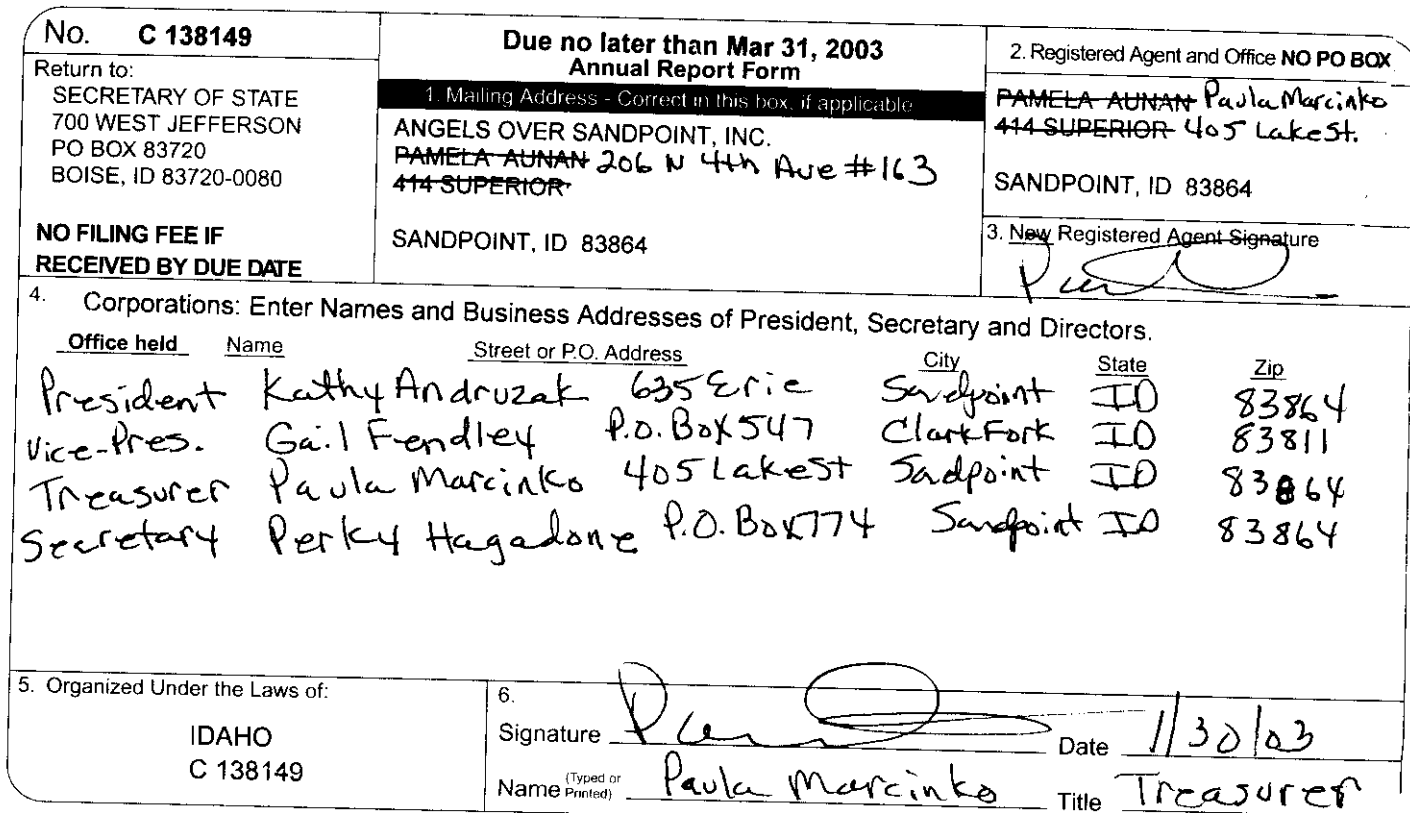 No. C 138149
Return to:
SECRETARY OF STATE
700 WEST JEFFERSON
PO BOX 83720
BOISE, ID 83720-0080
NO FILING FEE IF
RECEIVED BY DUE DATE
Due no later than Mar 31, 2003
Annual Report Form
1. Mailing Address - Correct in this box, if applicable
ANGELS OVER SANDPOINT, INC.
PAMELA AUNAN 206 N 4th Ave #163
414 SUPERIOR
SANDPOINT, ID 83864
2. Registered Agent and Office NO PO BOX
PAMELA AUNAN Paula Marcinko
414 SUPERIOR 405 Lake St.
SANDPOINT, ID 83864
3. New Registered Agent Signature
4. Corporations: Enter Names and Business Addresses of President, Secretary and Directors.
Office held Name Street or P.O. Address City State Zip
President Kathy Andruzak 635 Erie Sandpoint ID 83864
Vice-Pres. Gail Fendley P.O. Box 547 Clark Fork ID 83811
Treasurer Paula Marcinko 405 Lake St Sadpoint ID 83864
Secretary Perky Hagadone P.O. Box 774 Sandpoint ID 83864
5. Organized Under the Laws of:
IDAHO
C 138149
6.
Signature Date 1/30/03
Name (Typed or Printed) Paula Marcinko Title Treasurer